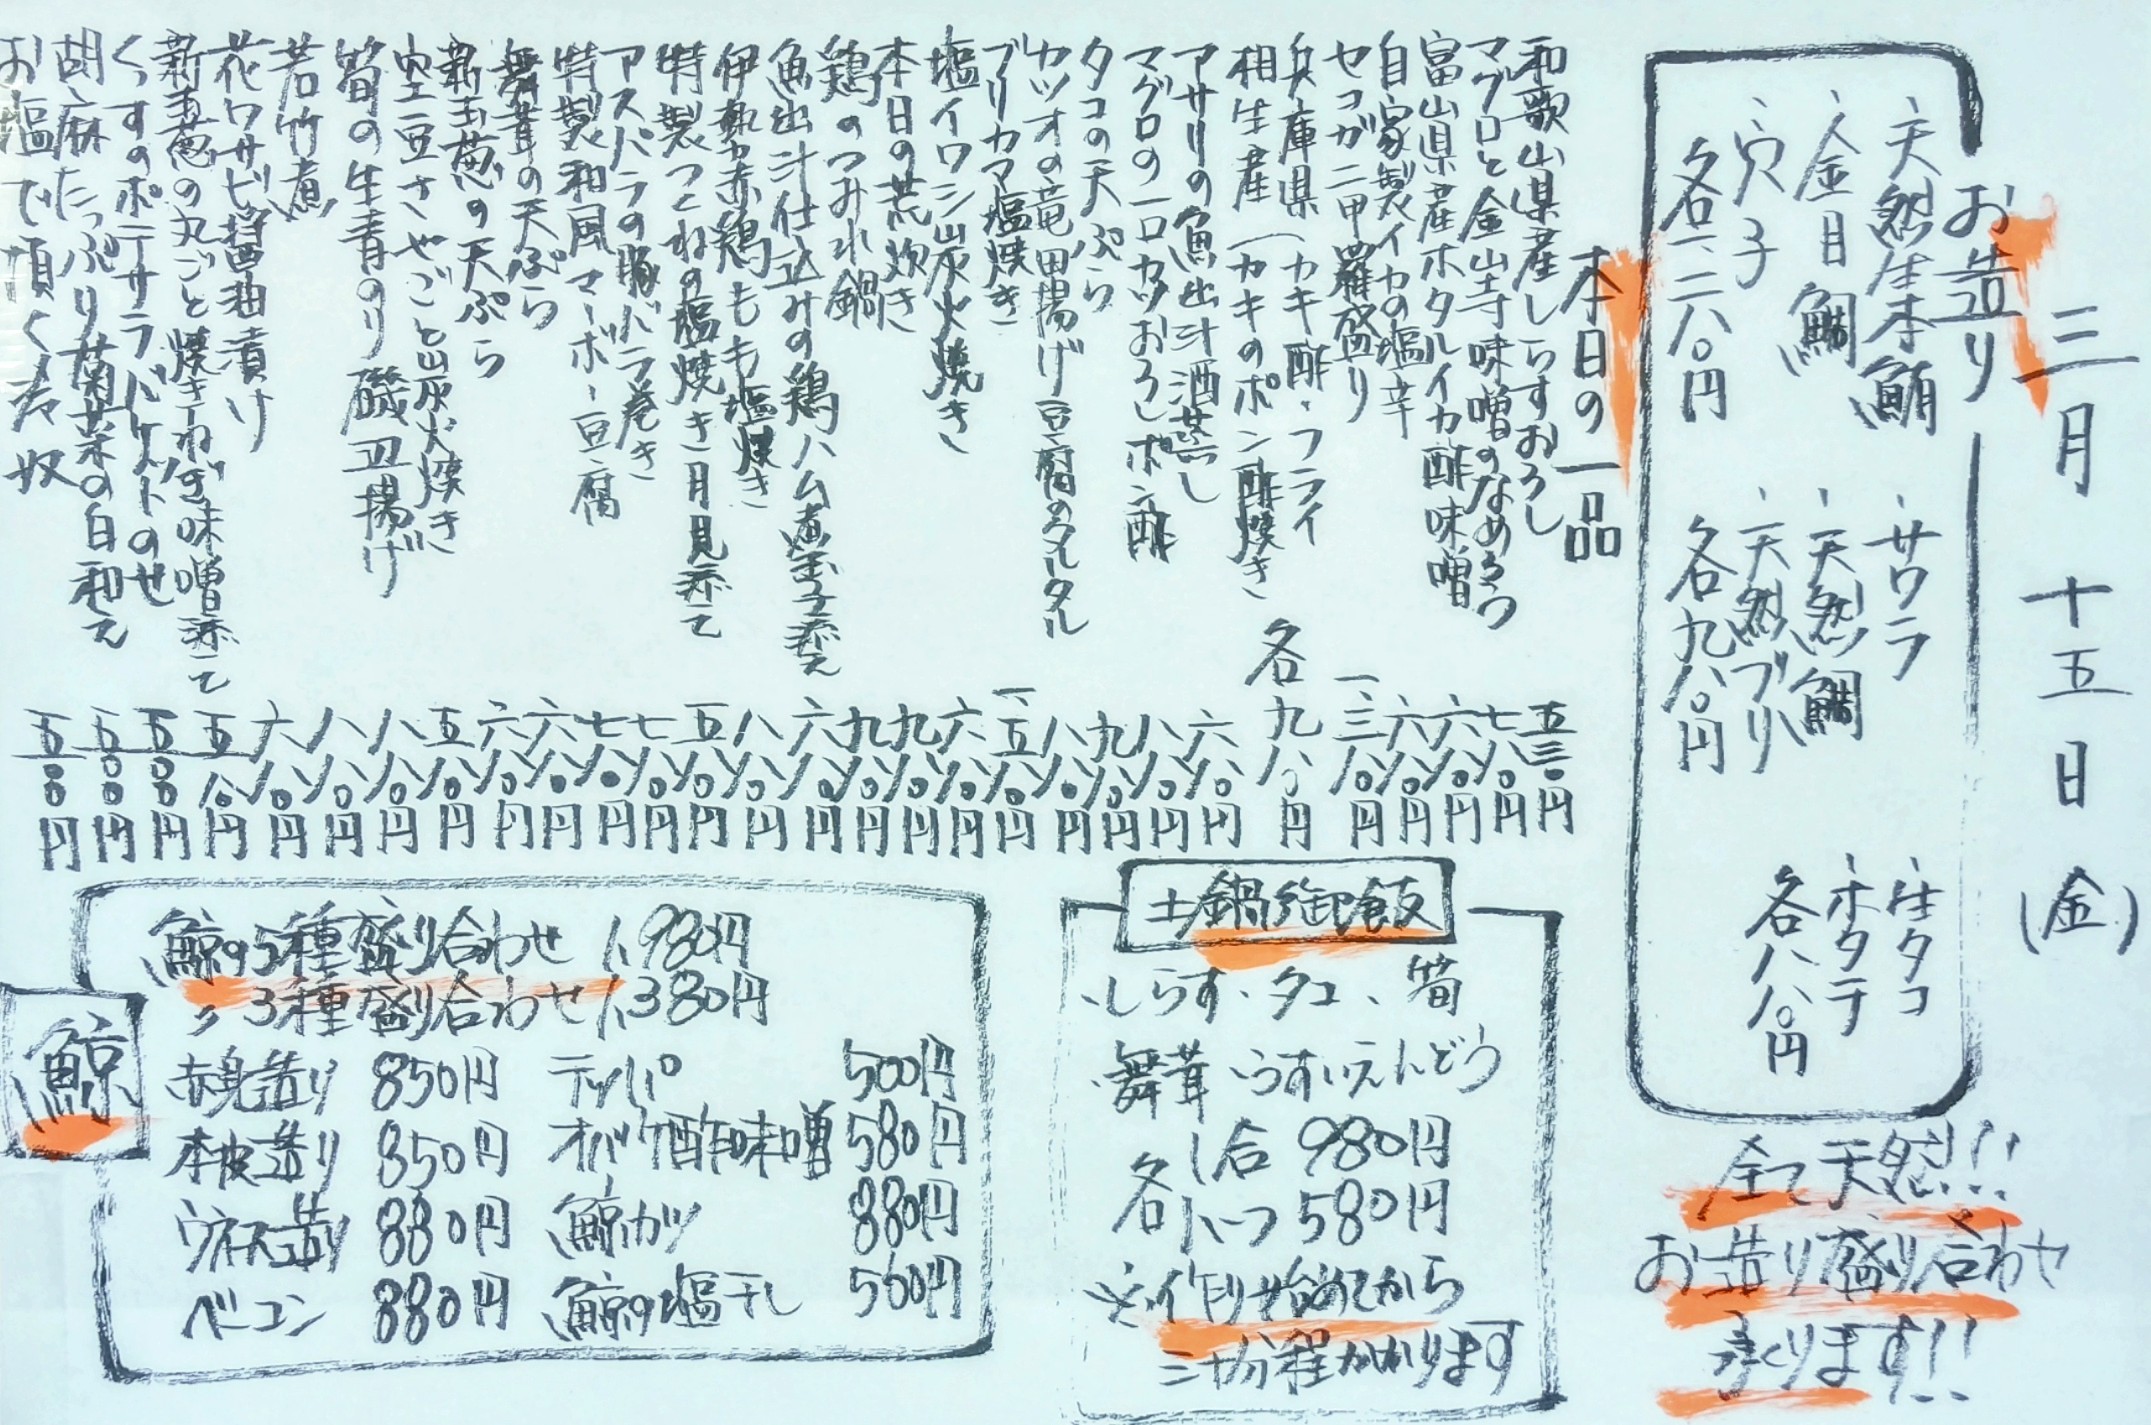 三月十五日(金)
お造り
、天然生本鮪
、金目鯛
、穴子
各一、二八〇円
、サワラ
、天然鯛
、天然ブリ
各九八〇円
、生タコ
、ホタテ
各八八〇円
全て天然!!
お造り盛り合わせ
承ります!!
本日の一品
和歌山県産しらすおろし 五三〇円
マグロと金山寺味噌のなめろう 七八〇円
富山県産ホタルイカ酢味噌 六八〇円
自家製イカの塩辛 六八〇円
セコガニ甲羅盛り 一、三八〇円
兵庫県(カキ酢・フライ
相生産(カキのポン酢焼き 各九八〇円
アサリの魚出汁酒蒸し 六八〇円
マグロの一口カツおろしポン酢 八八〇円
タコの天ぷら 九八〇円
カツオの竜田揚げ豆腐のタルタル 八八〇円
ブリカマ塩焼き 一、五八〇円
塩イワシ炭火焼き 六八〇円
本日の荒炊き 九八〇円
鶏のつみれ鍋 九八〇円
魚出汁仕込みの鶏ハム煮玉子添え 六八〇円
伊勢赤鶏もも塩焼き 八八〇円
特製つくねの塩焼き月見添て 五八〇円
アスパラの豚バラ巻き 七八〇円
特製和風マーボー豆腐 七八〇円
舞茸の天ぷら 六八〇円
新玉葱の天ぷら 六八〇円
空豆さやごと炭火焼き 五八〇円
筍の生青のり磯辺揚げ 八八〇円
若竹煮 八八〇円
花ワサビ醤油漬け 六八〇円
新玉葱の丸ごと焼きーねぎ味噌添て 五八〇円
くつすのポテサラバケットのせ 五〇〇円
胡麻たっぷり菊菜の白和え 五〇〇円
お塩で頂く冷奴 五〇〇円
土鍋御飯
、しらす、タコ、筍
、舞茸、うすいえんどう
各 1合 980円
各 ハーフ 580円
※作り始めてから
三十分程かかります
鯨
鯨の5種盛り合わせ 1,980円
〃 3種盛り合わせ 1,380円
赤身造り 850円
本皮造り 850円
ウネス造り 880円
ベーコン 880円
テッパ 500円
オバケ酢味噌 580円
鯨カツ 880円
鯨の塩干し 560円